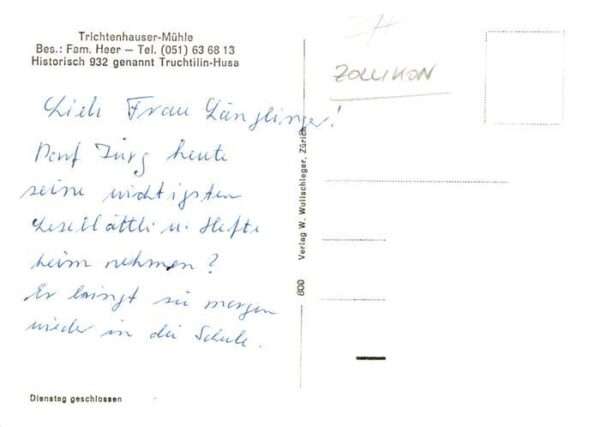 Trichtenhauser-Mühle
Bes.: Fam. Heer — Tel. (051) 63 68 13
Historisch 932 genannt Truchtilin-Husa
ZOLLIKON
Lieb Frau Länglinger!
Darf Jürg heute
seine wichtigsten
Leseblättli u. Hefte
heim nehmen?
Er bringt sie morgen
wieder in die Schule.
Dienstag geschlossen
800
Verlag W. Wullschleger, Zürich